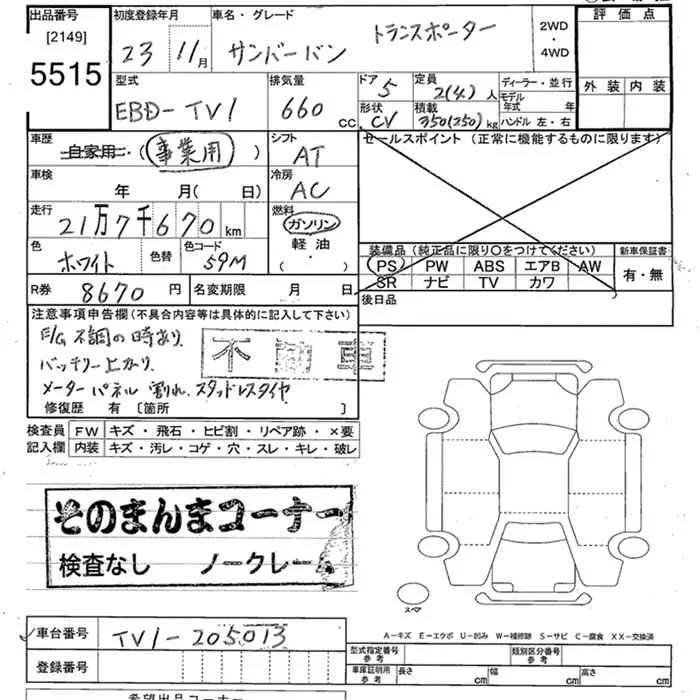 出品番号
[2149]
5515
初度登録年月
23 11月
車名・グレード
サンバーバン トランスポーター
2WD
・
4WD
評価点
外装 内装
型式
EBD-TV1
排気量
660 cc
ドア 5
形状 CV
定員 2(4)人
積載 350(250)kg
ディーラー・並行
モデル年式 年
ハンドル 左・右
車歴
自家用・(事業用)
シフト
AT
セールスポイント(正常に機能するものに限ります)
車検
年 月( 日)
冷房
AC
走行
21万7千670km
燃料
ガソリン
軽油
( )
色
ホワイト
色替
色コード
59M
装備品(純正品に限り〇をつけてください)
新車保証書
PS PW ABS エアB AW
SR ナビ TV カワ
有・無
R券 8670円
名変期限 月 日
後日品
注意事項申告欄(不具合内容等は具体的に記入して下さい)
E/G 不調の時あり
バッテリー上がり
メーターパネル割れ、スタッドレスタイヤ
修復歴 有[箇所 ]
検査員記入欄
FW キズ・飛石・ヒビ割・リペア跡・×要
内装 キズ・汚レ・コゲ・穴・スレ・キレ・破レ
そのまんまコーナー
検査なし ノークレーム
スペア
A-キズ E-エクボ U-凹み W-補修跡 S-サビ C-腐食 XX-交換済
車台番号 TV1-205013
登録番号
型式指定番号
参考
類別区分番号
参考
車庫証明用
参考
長さ cm
幅 cm
高さ cm
希望出品コーナー